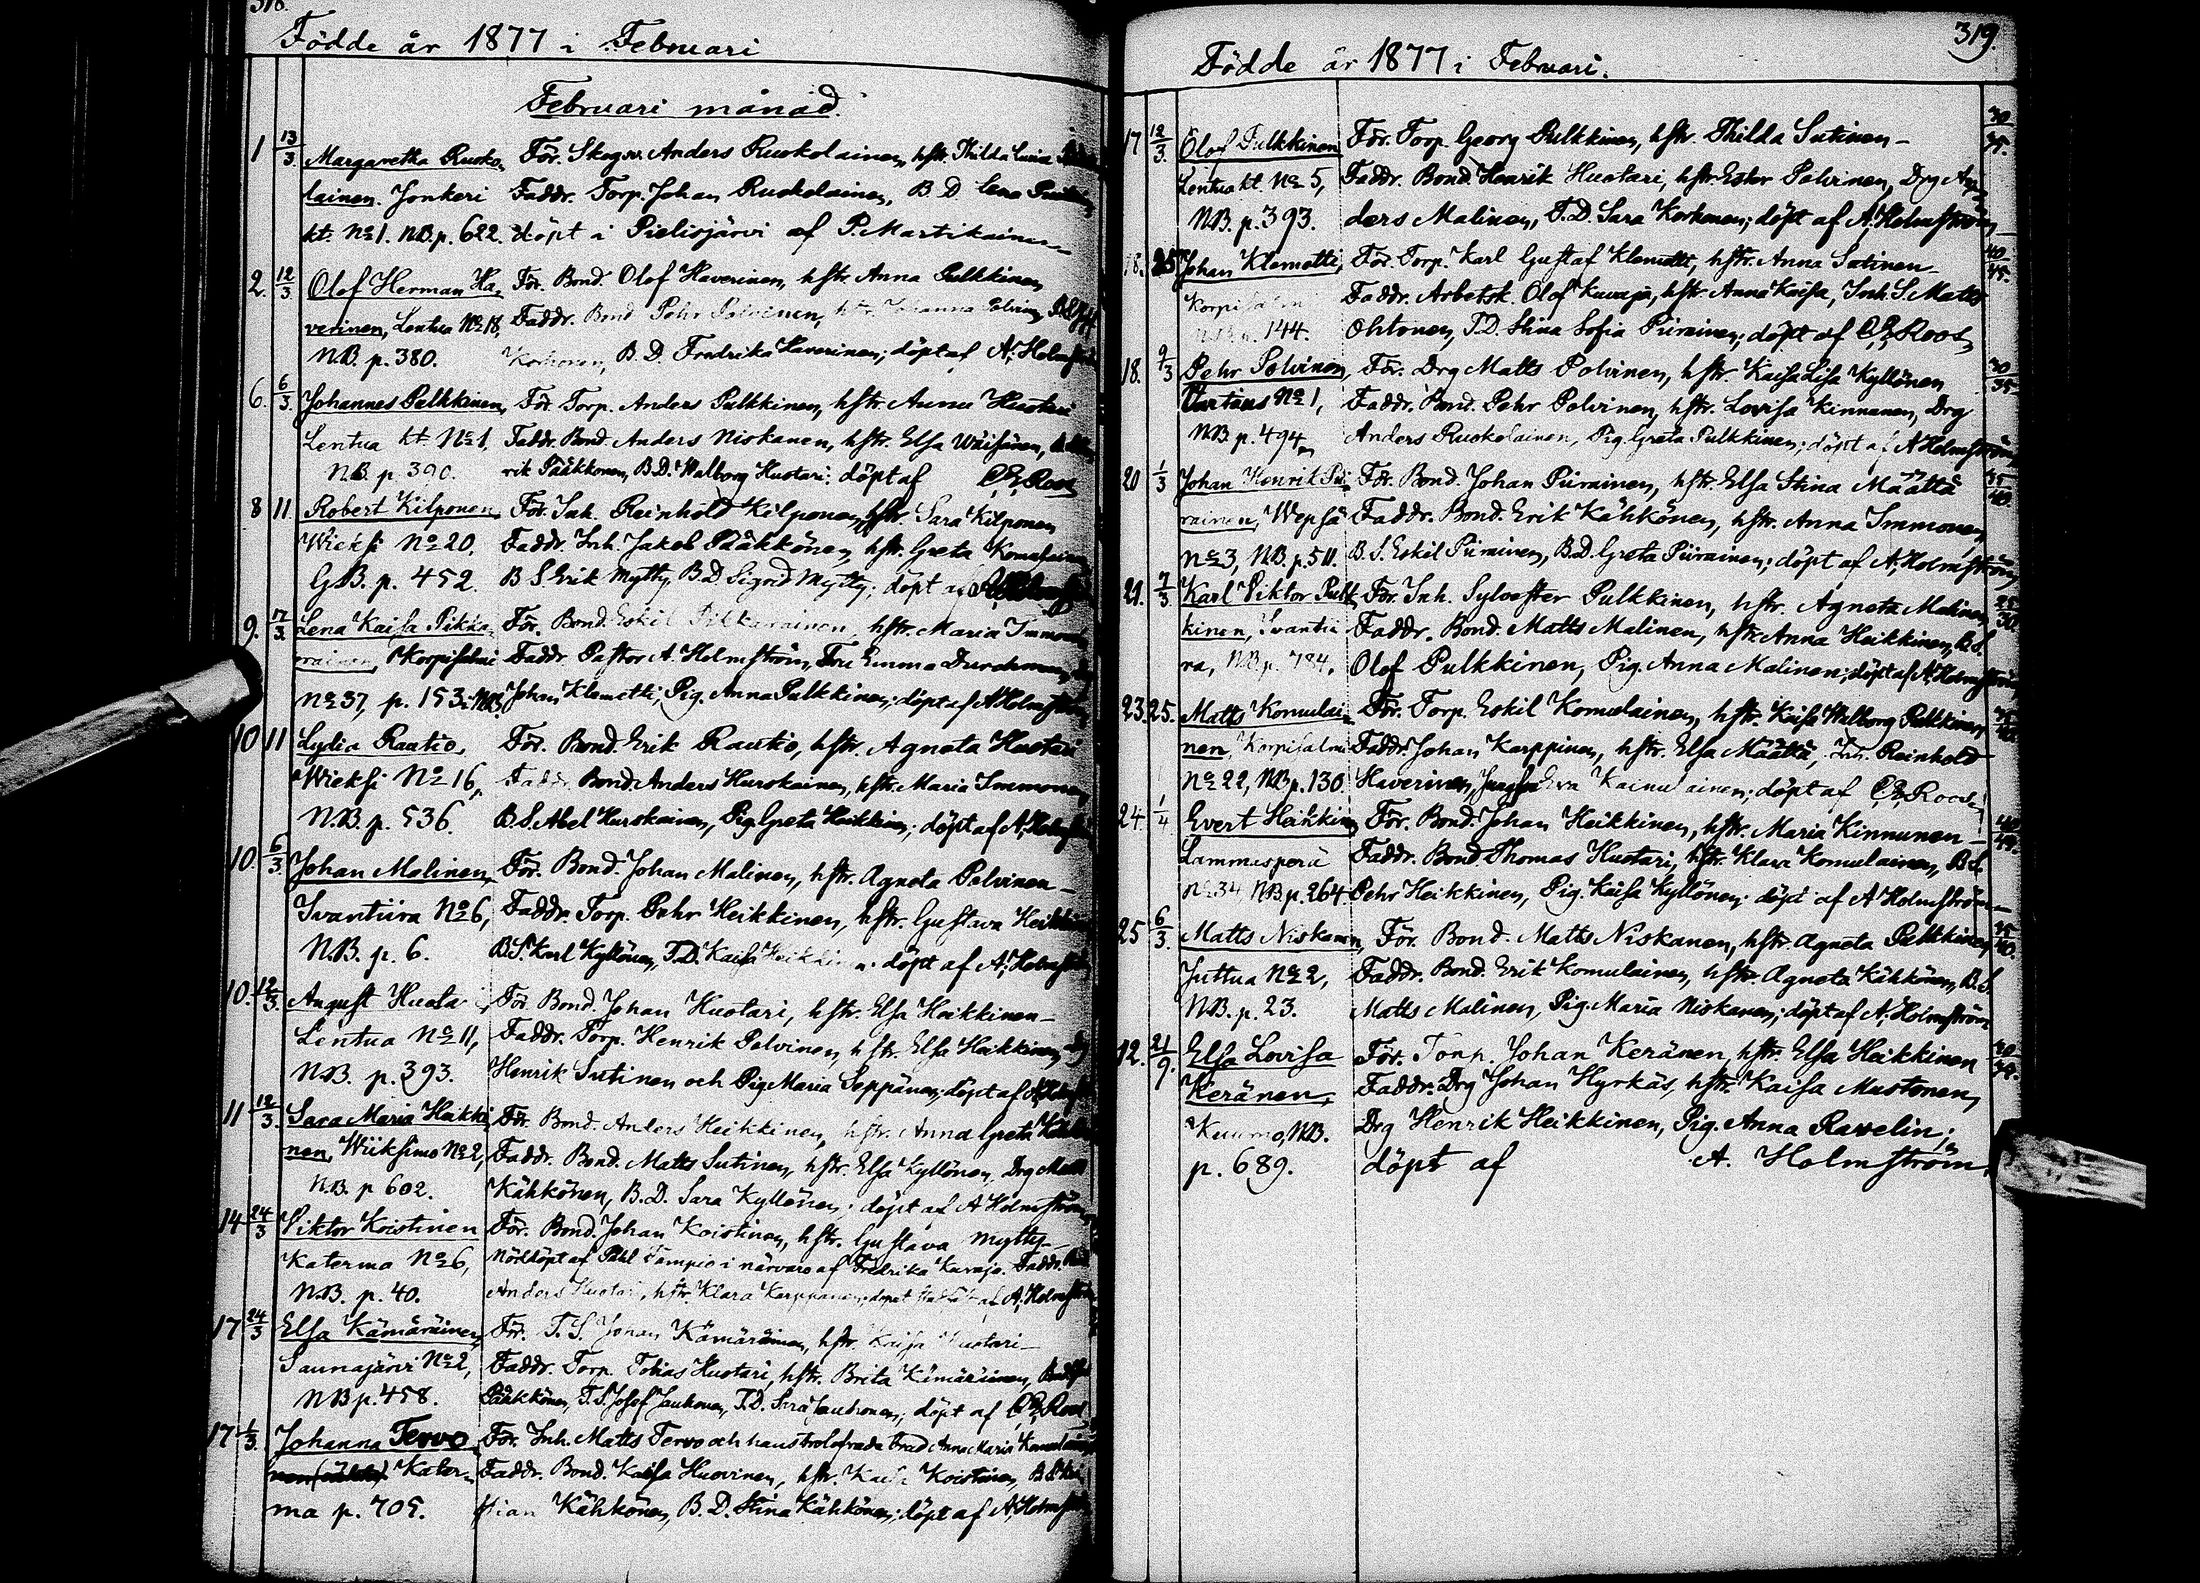 318.
Födde år 1877 i Februari
Februari månad.
1 13/3 Margaretha Ruoko- För. Skogsv. Anders Ruokolainen, hstr. Thilda
lainen. Jonkeri Faddr. Torp. Johan Ruokolainen, B. D. Lena
kt. No 1. N.B. p. 622. döpt i Pielisjärvi af P. Martikainen
2. 12/3 Olof Herman Ha- För. Bond. Olof Haverinen, hstr. Anna Pulkkinen
verinen, Lentua No 18, Faddr. Bond Pehr Polvinen, hstr. Johanna Polvinen,
N.B. p. 380. Korhonen, B. D. Fredrika Haverinen; döpt af A. Holmström
6. 6/3 Johannes Pulkkinen, För. Torp. Anders Pulkkinen, hstr. Anna Huotari
Lentua kt. No 1, Faddr. Bond. Anders Niskanen, hstr. Elsa Wäisänen,
N.B. p. 390. rik Pääkkönen, B.D. Walborg Huotari; döpt af C.E. Roos
8 11. Robert Kilponen För. Inh. Reinhold Kilponen, hstr. Sara Kilponen
Wieksi No 20. Faddr. Inh. Jakob Pääkkönen, hstr. Greta
G.B. p. 452. B S Erik Mytty, B.D Sigrid Mytty; döpt af
9. 7/3 Lena Kaisa Pikka- För. Bond. Eskil Pikkarainen, hstr. Maria Immonen
rainen, Korpisalmi Faddr. Pastor A. Holmström, Fru Emma Durchman,
No 37, p. 153. N.B. Johan Klemetti, Pig. Anna Pulkkinen; döpt af A Holmström
10 11 Lydia Rautio, För. Bond. Erik Rautio, hstr. Agneta Huotari
Wieksi No 16, Faddr. Bond. Anders Hurskainen, hstr. Maria Immonen,
N.B. p. 536. B.S. Abel Hurskainen, Pig. Greta Heikkinen; döpt af A. Holmström
10. 6/3 Johan Malinen, För. Bond. Johan Malinen, hstr. Agneta Polvinen –
Ivantiira No 6, Faddr. Torp. Pehr Heikkinen, hstr. Gustava Heikkinen
N.B. p. 6. B.S. Karl Kyllönen, T.D. Kaisa Heikkinen; döpt af A. Holmström
10. 12/3. August Huotari, För. Bond. Johan Huotari, hstr. Elsa Heikkinen –
Lentua No 11, Faddr. Torp. Henrik Polvinen, hstr. Elsa Heikkinen,
N.B. p. 393. Henrik Sutinen och Pig. Maria Seppänen; döpt af A. Holmström
11 12/3. Sara Maria Heikki- För. Bond. Anders Heikkinen, hstr. Anna Greta
nen, Wiiksimo No 2, Faddr. Bond. Matts Sutinen, hstr. Elsa Kyllönen, Drg Matts
N.B. p 602. Kähkönen, B. D. Sara Kyllönen; döpt af A Holmström
14 24/3 Viktor Koistinen För. Bond. Johan Koistinen, hstr. Gustava Mytty –
Katerma No 6, Nöddöpt af Påhl Tampio i närvaro af Fredrika Kuvaja. Faddr.
N.B. p. 40. Anders Huotari, hstr. Klara Karppanen; döpt af A. Holmström
17 24/3 Elsa Kämäräinen, För. T. S. Johan Kämäräinen, hstr. Kaisa Huotari –
Saunajärvi No 2, Faddr. Torp. Tobias Huotari, hstr. Brita Kämäräinen,
NB p. 458. Pääkkönen, T.S. Josef Jauhonen, T.D. Sara Jauhonen; döpt af C.E. Roos
17 1/3. Johanna Tervo För. Inh. Matts Tervo och hans trolofvada Anna Maria Komulainen
Kater- Faddr. Bond. Kaisa Huovinen, hstr. Kaisa Koistinen,
ma p. 705. stian Kähkönen, B. D. Stina Kähkönen; döpt af A. Holmström
319.
Födde år 1877 i Februari.
17 12/3. Olof Pulkkinen För. Torp. Georg Pulkkinen, hstr. Thilda Sutinen – 30/35.
Lentua kt. No 5, Faddr. Bond. Henrik Huotari, hstr. Ester Polvinen, Drg An-
N.B. p. 393. ders Malinen, T.D. Sara Korhonen; döpt af A. Holmström
18. 25 Johan Klemetti, För. Torp. Karl Gustaf Klemetti, hstr. Anna Sutinen – 40/45.
Korpisalmi Faddr. Arbetsk. Olof Kuvaja, hstr. Anna Kaisa, Inh. S. Matts
N.B. p. 144. Ohtonen, T.D. Stina Sofia Piirainen; döpt af C.E. Roos
18. 9/3 Pehr Polvinen, För. Drg Matts Polvinen, hstr. Kaisa Lisa Kyllönen 30/35
Vartius No 1, Faddr. Bond. Pehr Polvinen, hstr. Lovisa Kinnunen, Drg
NB p. 494. Anders Ruokolainen, Pig. Greta Pulkkinen; döpt af A Holmström
20 1/3 Johan Henrik Pii- För. Bond. Johan Piirainen, hstr. Elsa Stina Määttä 35/40.
rainen, Wepsä Faddr. Bond. Erik Kähkönen, hstr. Anna Immonen,
No 3, N.B. p. 511. B. S. Eskil Piirainen, B.D. Greta Piirainen; döpt af A. Holmström
21. 7/3 Karl Viktor Pulk- För. Inh. Sylvester Pulkkinen, hstr. Agneta Malinen 25/30
kinen, Ivantii- Faddr. Bond. Matts Malinen, hstr. Anna Heikkinen, B.S.
ra, NB p. 784. Olof Pulkkinen, Pig. Anna Malinen; döpt af A. Holmström
23. 25. Matts Komulai- För. Torp. Eskil Komulainen, hstr. Kaisa Walborg Pulkkinen,
nen, Korpisalmi Faddr. Johan Karppinen, hstr. Elsa Määttä, Inh. Reinhold
No 22, NB p. 130. Haverinen, Jungfru Eva Kainulainen; döpt af C.E. Roos
24. 1/4 Evert Heikkinen För. Bond. Johan Heikkinen, hstr. Maria Kinnunen –
Lammasperä Faddr. Bond Thomas Huotari, hstr. Klara Komulainen, B.S.
No 34, NB p. 264. Pehr Heikkinen, Pig. Kaisa Kyllönen; döpt af A Holmström
25 6/3. Matts Niskanen, För. Bond. Matts Niskanen, hstr. Agneta Pulkkinen, 35/40.
Juttua No 2, Faddr. Bond. Erik Komulainen, hstr. Agneta Kähkönen, B.S.
NB. p. 23. Matts Malinen, Pig. Maria Niskanen; döpt af A. Holmström
12. 21/9. Elsa Lovisa För. Torp. Johan Keränen, hstr. Elsa Heikkinen
Keränen, Faddr. Drg Johan Hyrkäs, hstr. Kaisa Mustonen,
Kuumo, N.B. Drg Henrik Heikkinen, Pig. Anna Ravelin;
p. 689. döpt af A. Holmström.